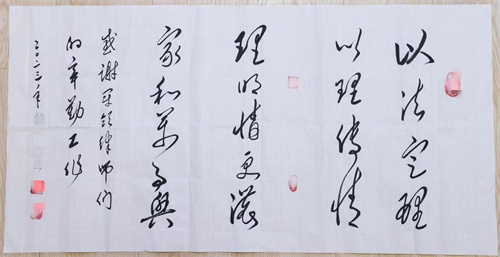 以法定理
以理传情
理明情更深
家和万事兴
感谢军领律师们
的辛勤工作
二〇二三年